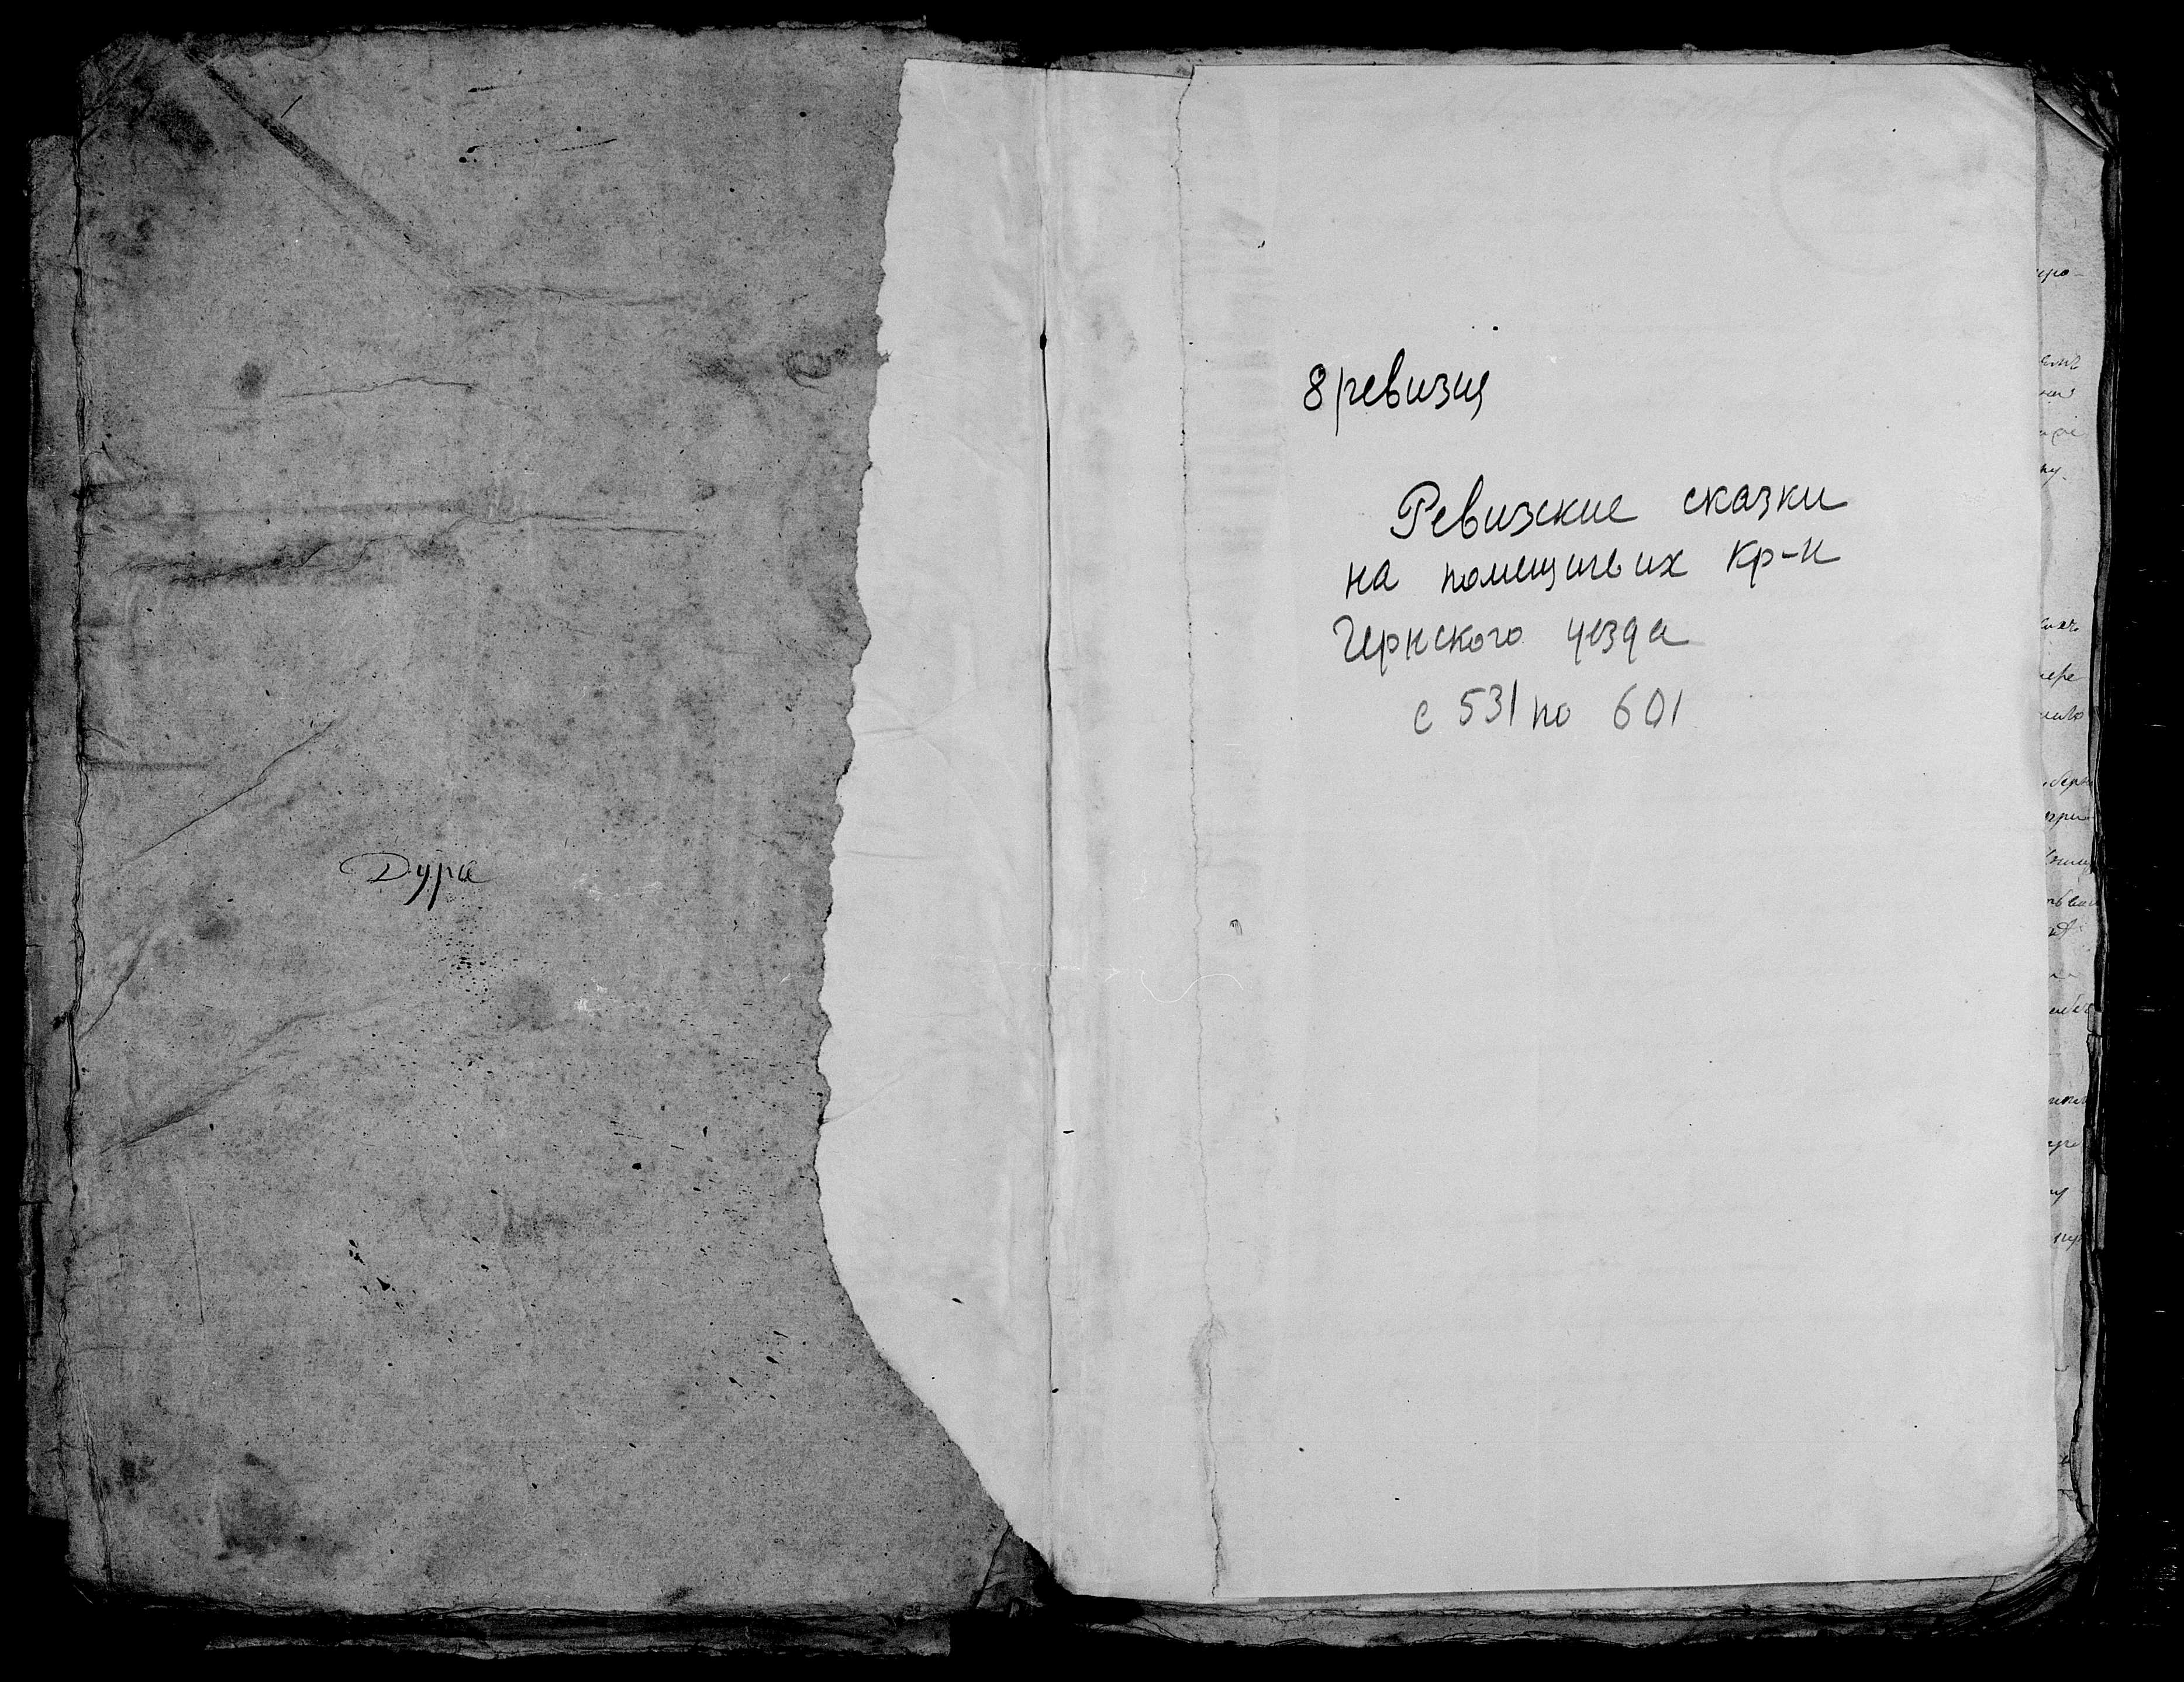 Дура
8 ревизия
Ревизские сказки
на помещичьих кр-н
Чернского уезда
с 531 по 601